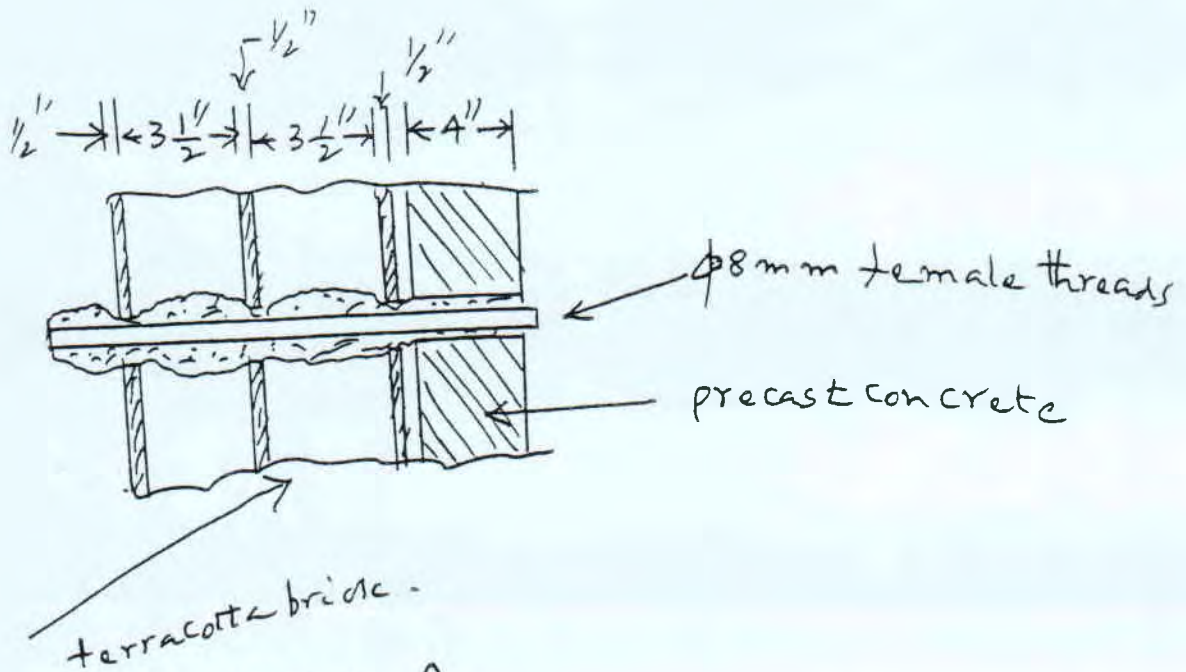 1/2"
1/2"
1/2"
3 1/2"
3 1/2"
4"
φ8mm female threads
precast concrete
terracotta brick.